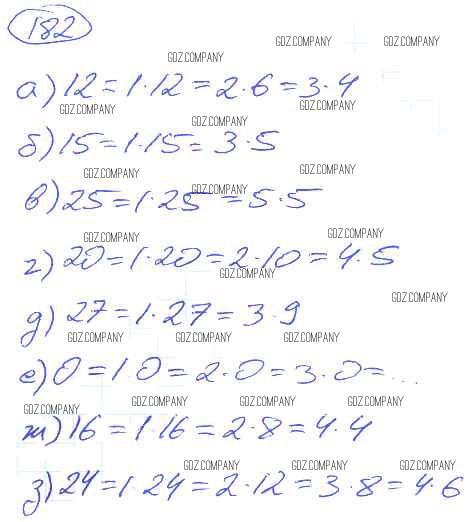 182
GDZ.COMPANY GDZ.COMPANY
GDZ.COMPANY
а) 12 = 1·12 = 2·6 = 3·4
GDZ.COMPANY GDZ.COMPANY
GDZ.COMPANY
б) 15 = 1·15 = 3·5
GDZ.COMPANY GDZ.COMPANY
GDZ.COMPANY
в) 25 = 1·25 = 5·5
GDZ.COMPANY GDZ.COMPANY
г) 20 = 1·20 = 2·10 = 4·5
GDZ.COMPANY
GDZ.COMPANY
д) 27 = 1·27 = 3·9
GDZ.COMPANY GDZ.COMPANY GDZ.COMPANY
е) 0 = 1 0 = 2·0 = 3·0 = ...
GDZ.COMPANY GDZ.COMPANY GDZ.COMPANY
GDZ.COMPANY
ж) 16 = 1·16 = 2·8 = 4·4
GDZ.COMPANY GDZ.COMPANY GDZ.COMPANY
з) 24 = 1·24 = 2·12 = 3·8 = 4·6